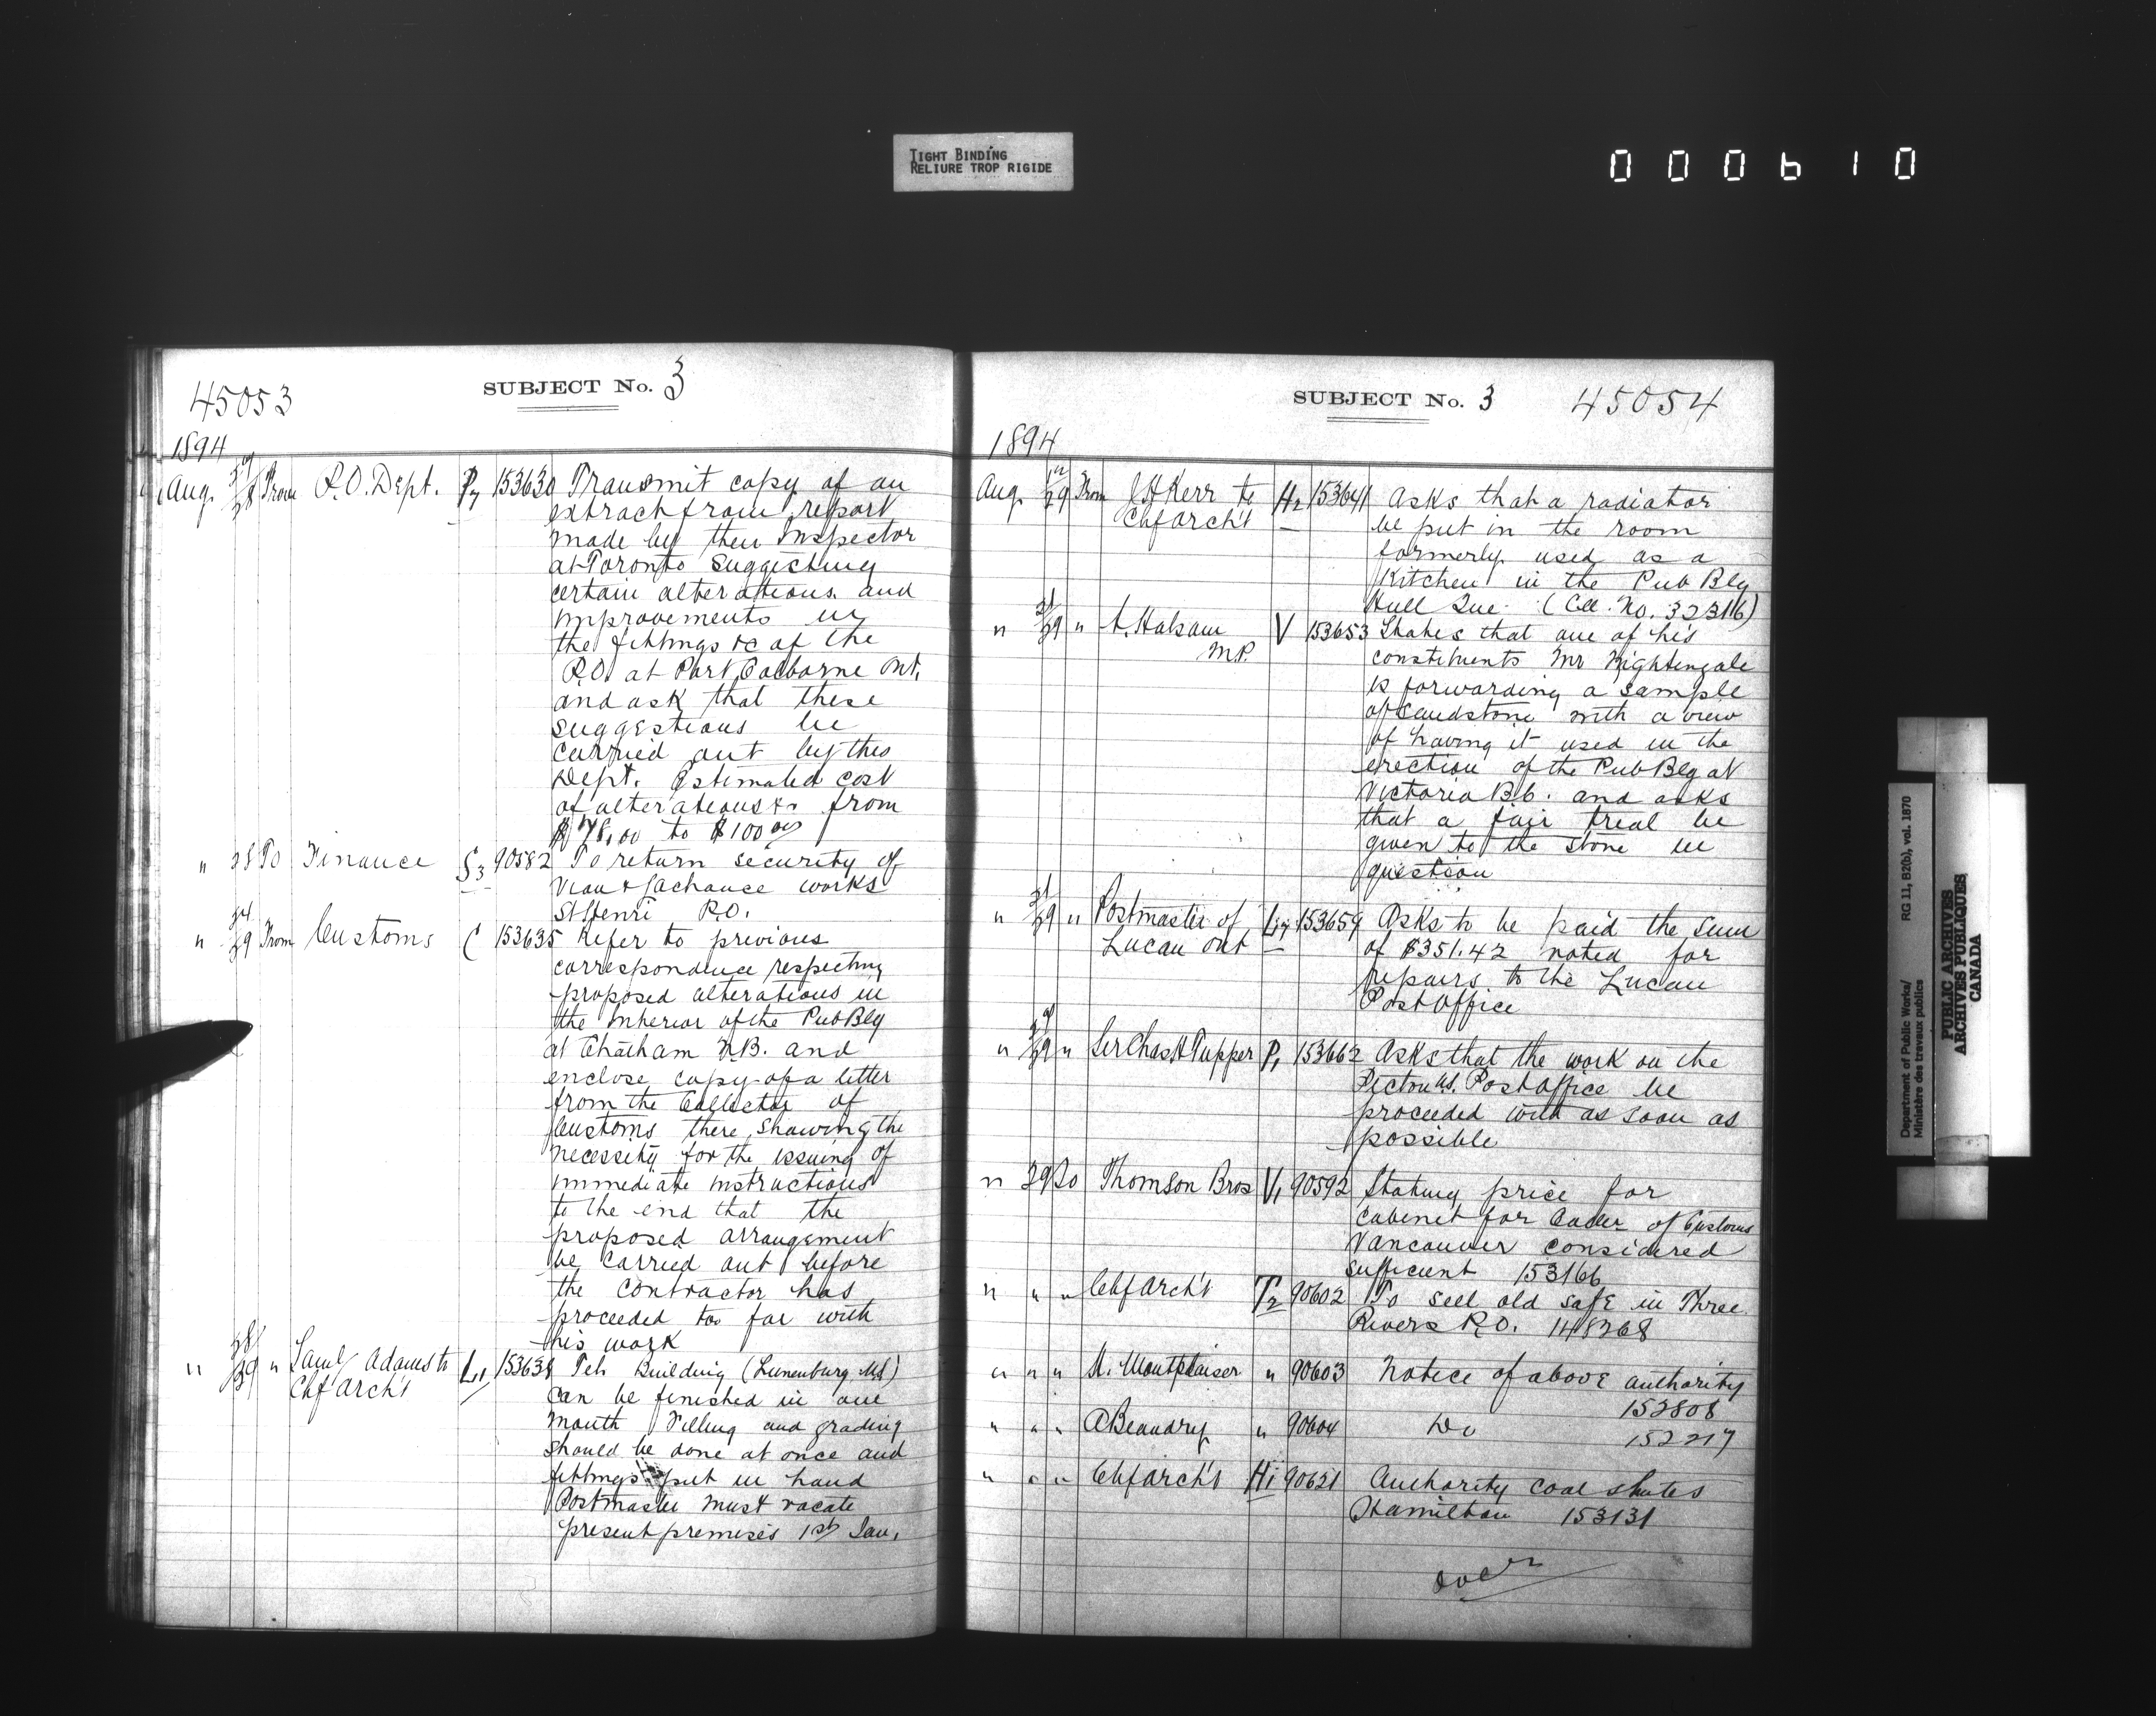 TIGHT BINDING
RELIURE TROP RIGIDE
000610
45053
SUBJECT No. 3
1894
Aug. 28 From P.O. Dept. P7 153630 Transmit copy of an
extract from report
made by their Inspector
at Toronto suggesting
certain alterations and
improvements in
the fittings &c of the
P.O. at Port Colborne Ont.
and ask that these
suggestions be
carried out by this
Dept. Estimated cost
of alterations &c from
$78.00 to $100.00
" 28 To Finance S3 90582 To return security of
Viau & Lachance works
St Henri P.O.
" 29 From Customs C 153635 Refer to previous
correspondence respecting
proposed alterations in
the interior of the Pub Blg
at Chatham N.B. and
enclose copy of a letter
from the Collector of
Customs there, showing the
necessity for the issuing of
immediate instructions
to the end that the
proposed arrangement
be carried out before
the contractor has
proceeded too far with
his work
" 28/29 " Saml Adams to L1 153638 Teh Building (Lunenburg NS)
Chf Arch't can be finished in one
month Filling and grading
should be done at once and
fittings put in hand
Postmaster must vacate
present premises 1st Jan.
SUBJECT No. 3 45054
1894
Aug. 29 From J H Kerr to H2 153641 Asks that a radiator
Chf Arch't be put in the room
formerly used as a
Kitchen in the Pub Blg
Hull Que. (Cll. No. 32316)
" 21/29 " A. Haslam V 153653 States that one of his
M.P. constituents Mr Nightengale
is forwarding a sample
of sandstone with a view
of having it used in the
erection of the Pub Blg at
Victoria B.C. and asks
that a fair trial be
given to the stone in
question
" 29 " Postmaster of L17 153659 Asks to be paid the sum
Lucan Ont of $351.42 noted for
repairs to the Lucan
Post Office
" 29 " Sir Chas H Tupper P1 153662 Asks that the work on the
Pictou NS. Post Office be
proceeded with as soon as
possible
" 29 To Thomson Bros V1 90592 Stating price for
cabinet for of Customs
Vancouver considered
sufficient 153166
" " " Chf Arch't T2 90602 To sell old safe in Three
Rivers P.O. 148268
" " " H. Montplaisir " 90603 Notice of above authority
152808
" " " A Beaudry " 90604 Do 152217
" " " Chf Arch't H1 90621 Authority coal shutes
Hamilton 153131
over
Department of Public Works/
Ministère des travaux publics
RG 11, B2(b), vol. 1870
PUBLIC ARCHIVES
ARCHIVES PUBLIQUES
CANADA